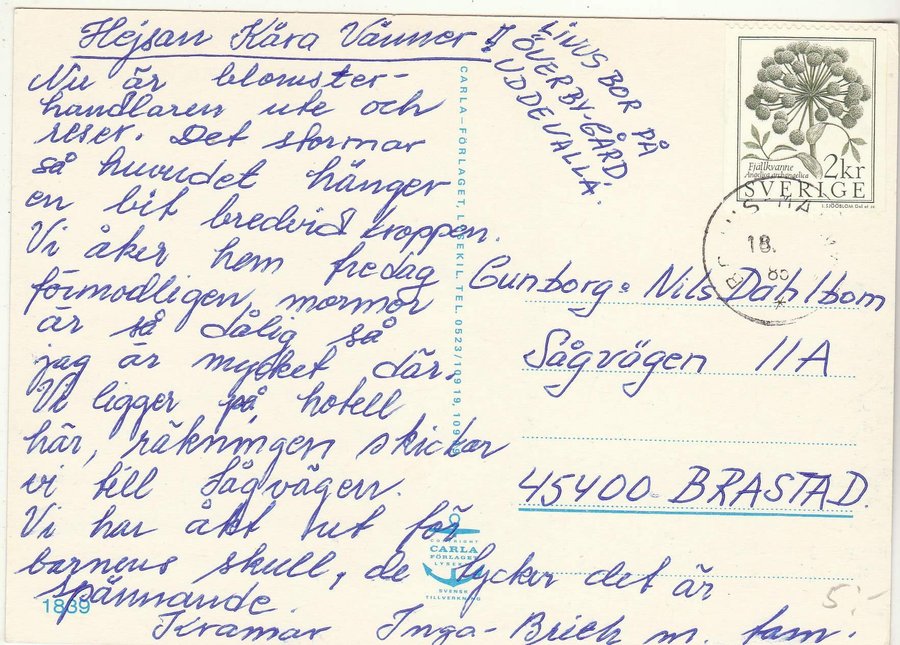 Hejsan Kära Vänner!!
Nu är blomster-
handlaren ute och
reser. Det stormar
så huvudet hänger
en bit bredvid kroppen.
Vi åker hem fredag
förmodligen, mormor
är så dålig så
jag är mycket där.
Vi ligger på hotell
här, räkningen skickar
vi till Sågvägen.
Vi har åkt ut för
barnens skull, de tycker det är
spännande.
Kramar Inga- m. fam.
LINUS BOR PÅ
ÖVERBY-GÅRD
UDDEVALLA.
CARLA-FÖRLAGET, LYSEKIL, TEL. 0523/109 19, 109
COPYRIGHT
CARLA
FÖRLAGET
LYSEKIL
SVENSK
TILLVERKNING
1839
Fjällkvanne
Angelica archangelica
2kr
SVERIGE
18.
Gunborg o Nils Dahlbom
Sågvägen 11A
45400 BRASTAD.
5:-